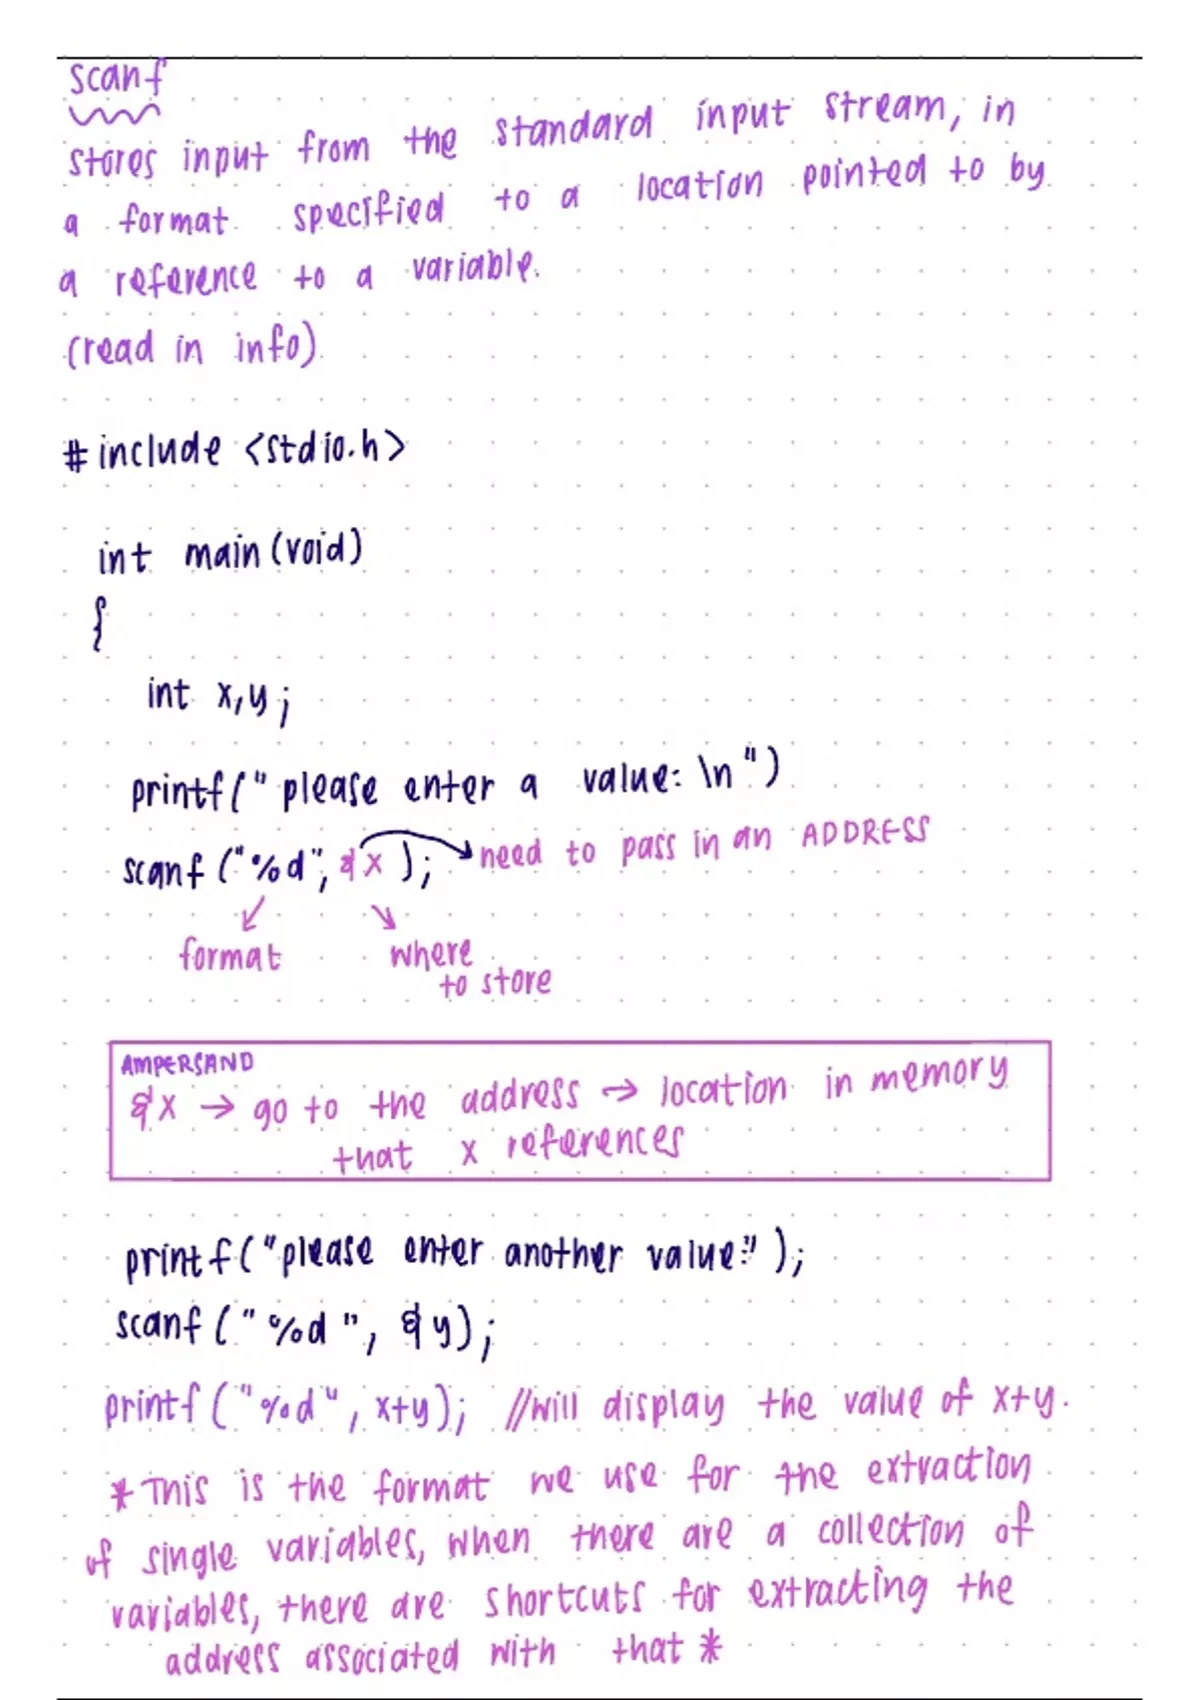 scanf
stores input from the standard input stream, in
a format specified to a location pointed to by
a reference to a variable.
(read in info)
#include <stdio.h>
int main(void)
{
int x,y;
printf("please enter a value: \n")
scanf("%d", &x); need to pass in an ADDRESS
format where
to store
AMPERSAND
&x → go to the address → location in memory
that x references
printf("please enter another value:");
scanf("%d", &y);
printf("%d", x+y); //will display the value of x+y.
* This is the format we use for the extraction
of single variables, when there are a collection of
variables, there are shortcuts for extracting the
address associated with that *